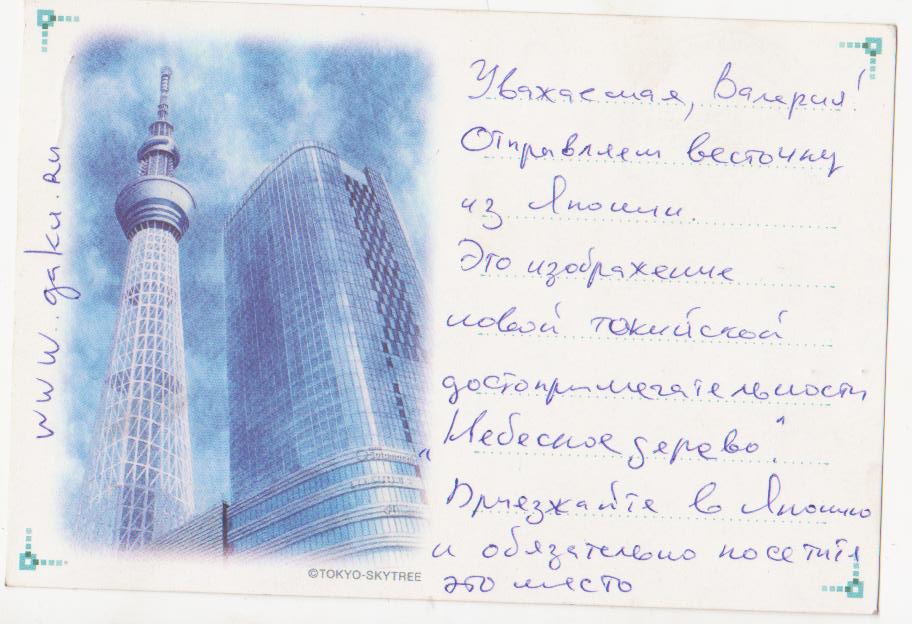 Уважаемая, Валерия!
Отправляем весточку
из Японии.
Это изображение
новой токийской
достопримечательности
"Небесное дерево".
Приезжайте в Японию
и обязательно посетите
это место
www.gaku.ru
©TOKYO-SKYTREE